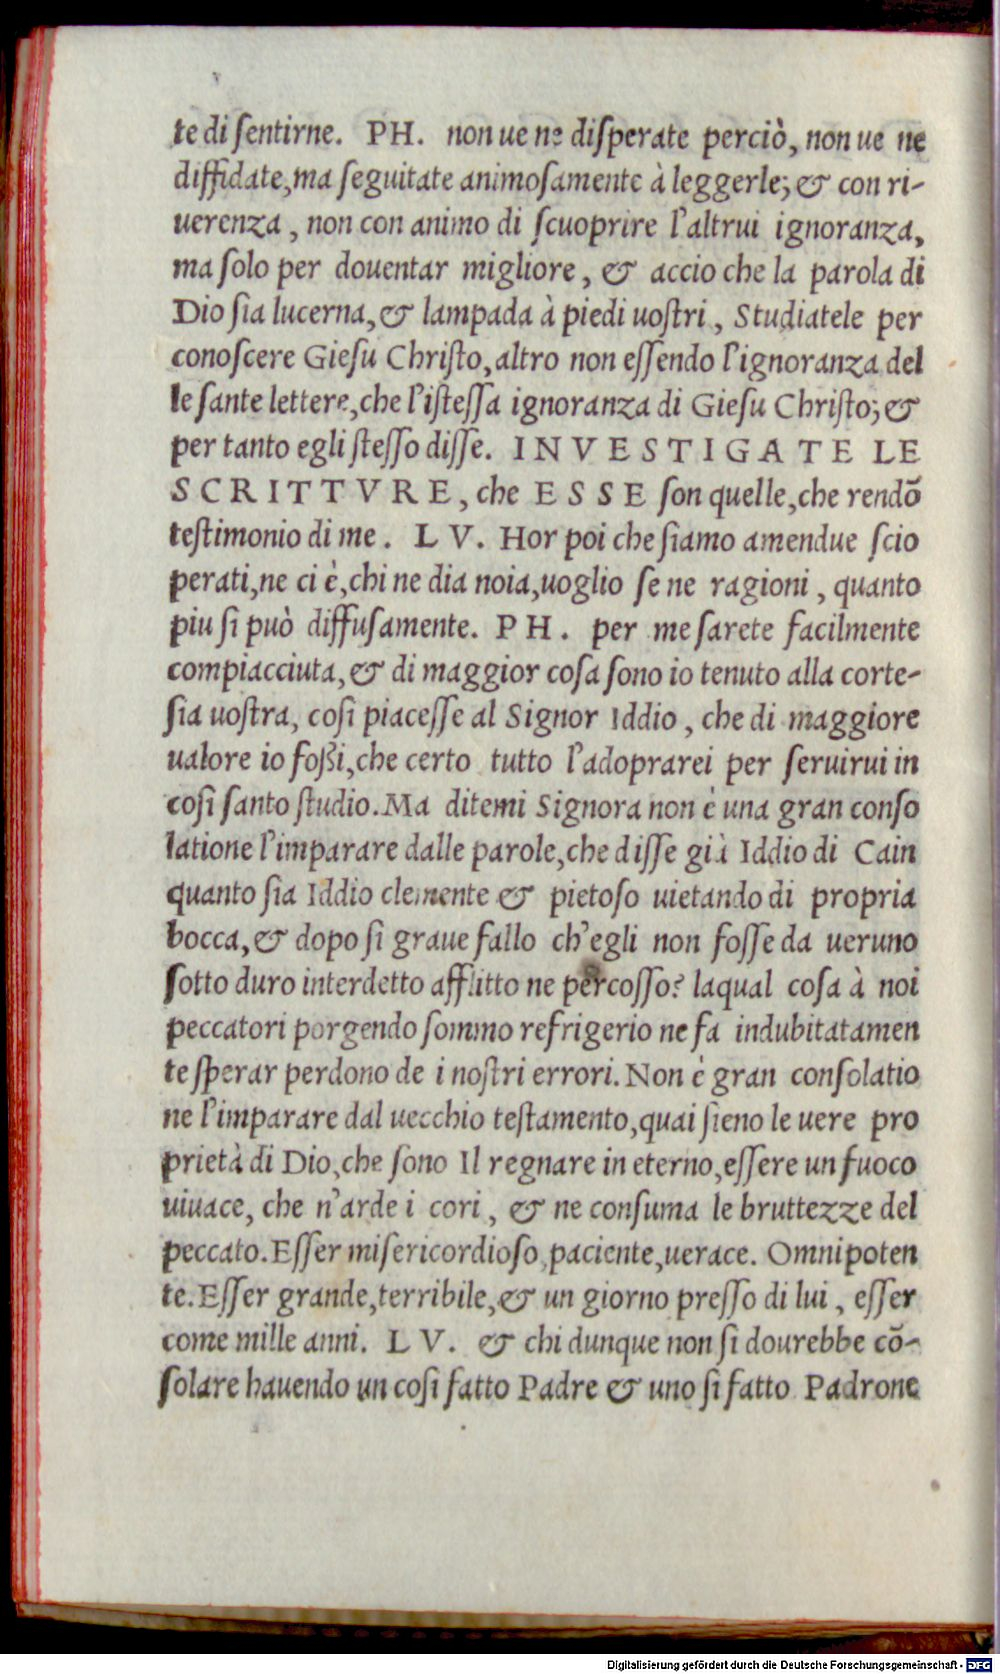 te di ſentirne. PH. non ue ne diſperate perciò, non ue ne
diffidate, ma ſeguitate animoſamente à leggerle; & con ri-
uerenza, non con animo di ſcuoprire l'altrui ignoranza,
ma ſolo per douentar migliore, & accio che la parola di
Dio ſia lucerna, & lampada à piedi uoſtri, Studiatele per
conoſcere Gieſu Chriſto, altro non eſſendo l'ignoranza del
le ſante lettere, che l'iſteſſa ignoranza di Gieſu Chriſto; &
per tanto egli ſteſſo diſſe. INVESTIGATE LE
SCRITTVRE, che ESSE ſon quelle, che rendō
teſtimonio di me. LV. Hor poi che ſiamo amendue ſcio
perati, ne ci è, chi ne dia noia, uoglio ſe ne ragioni, quanto
piu ſi può diffuſamente. PH. per me ſarete facilmente
compiacciuta, & di maggior coſa ſono io tenuto alla corte-
ſia uoſtra, coſi piaceſſe al Signor Iddio, che di maggiore
ualore io foßi, che certo tutto l'adoprarei per ſeruirui in
coſi ſanto ſtudio. Ma ditemi Signora non è una gran conſo
latione l'imparare dalle parole, che diſſe già Iddio di Cain
quanto ſia Iddio clemente & pietoſo uietando di propria
bocca, & dopo ſi graue fallo ch'egli non foſſe da ueruno
ſotto duro interdetto afflitto ne percoſſo? laqual coſa à noi
peccatori porgendo ſommo refrigerio ne fa indubitatamen
te ſperar perdono de i noſtri errori. Non è gran conſolatio
ne l'imparare dal uecchio teſtamento, quai ſieno le uere pro
prietà di Dio, che ſono Il regnare in eterno, eſſere un fuoco
uiuace, che n'arde i cori, & ne conſuma le bruttezze del
peccato. Eſſer miſericordioſo, paciente, uerace. Omnipoten
te. Eſſer grande, terribile, & un giorno preſſo di lui, eſſer
come mille anni. LV. & chi dunque non ſi dourebbe cō-
ſolare hauendo un coſi fatto Padre & uno ſi fatto Padrone
Digitalisierung gefördert durch die Deutsche Forschungsgemeinschaft - DFG